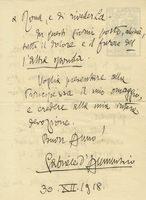 a Roma, e di rivederLa.
In questi giorni
tutto il dolore e il furore del
l'altra
Voglia presentare alla
Principessa il mio omaggio,
e credere alla mia
devozione.
Buon Anno!
Gabriele d'Annunzio
30. XII. 1918